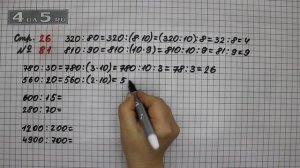 4DA5.RU
Стр. 26 320:80=320:(8·10)=(320:10):8=32:8=4
№ 81 810:90=810:(10·9)=810:10:9=81:9=9
780:30=780:(3·10)=780:10:3=78:3=26
560:20=560:(2·10)=5
600:15=
280:70=
1200:200=
4900:700=